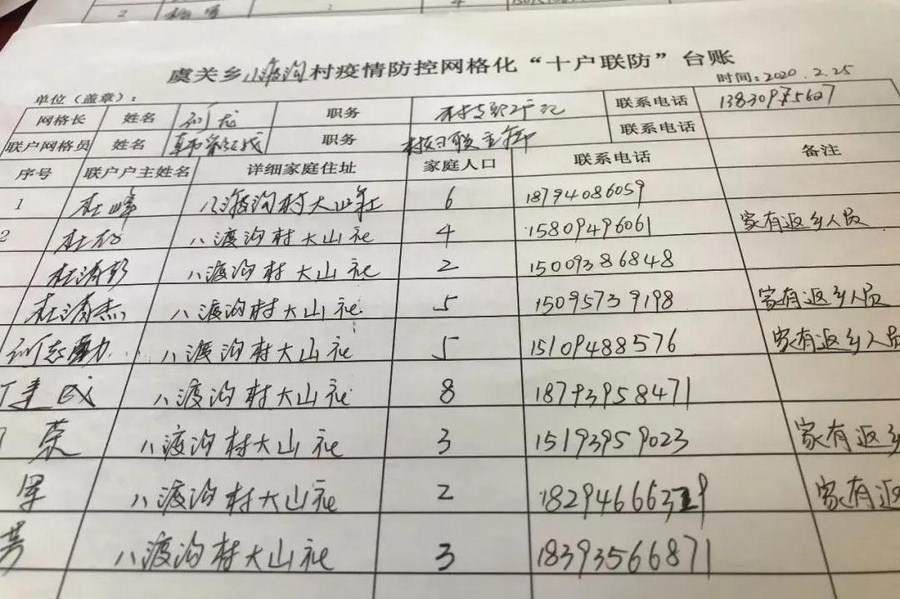 虞关乡八渡沟村疫情防控网格化“十户联防”台账
单位（盖章）： 时间：2020.2.25
网格长 姓名 刘龙 职务 联系电话
联户网格员 姓名 职务 联系电话
序号 联户户主姓名 详细家庭住址 家庭人口 联系电话 备注
1 杜峰 八渡沟村大山社 6 18794086059
2 4 15809496061 家有返乡人员
杜清彭 八渡沟村大山社 2 15009386848
杜清杰 八渡沟村大山社 5 15095739198 家有返乡人员
八渡沟村大山社 5 15109488576 家有返乡人员
建成 八渡沟村大山社 8 18793958471
荣 八渡沟村大山社 3 15193959023 家有返乡
军 八渡沟村大山社 2 家有返
芳 八渡沟村大山社 3 18393566871